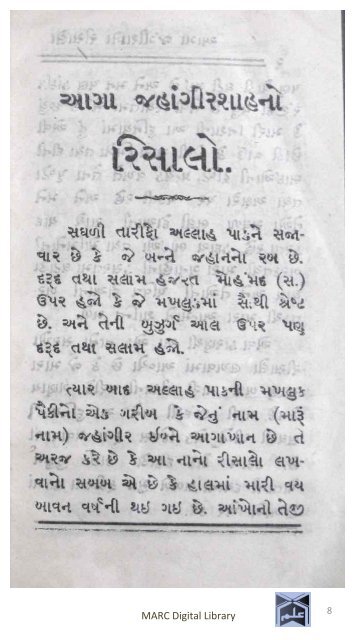 આગા જહાંગીરશાહનો
રિસાલો.
સઘળી તારીફો અલ્લાહ પાકને સજા-
વાર છે કે જે બન્ને જહાનના રબ છે.
દરૂદ તથા સલામ હજરત મોહંમદ (સ.)
ઉપર હજો કે જે મખલુકમાં સૈાથી શ્રેષ્ટ
છે. અને તેની બુઝુર્ગ આલ ઉપર પણ
દરૂદ તથા સલામ હજો.
ત્યાર બાદ અલ્લાહ પાકની મખલુક
પૈકીનો એક ગરીબ કે જેનું નામ (મારૂં
નામ) જહાંગીર ઈબ્ને આગાખાન છે તે
અરજ કરે છે કે આ નાનો રીસાલો લખ-
વાનો સબબ એ છે કે હાલમાં મારી વય
બાવન વર્ષની થઇ ગઇ છે. આંખોની તેજી
MARC Digital Library
علم
8